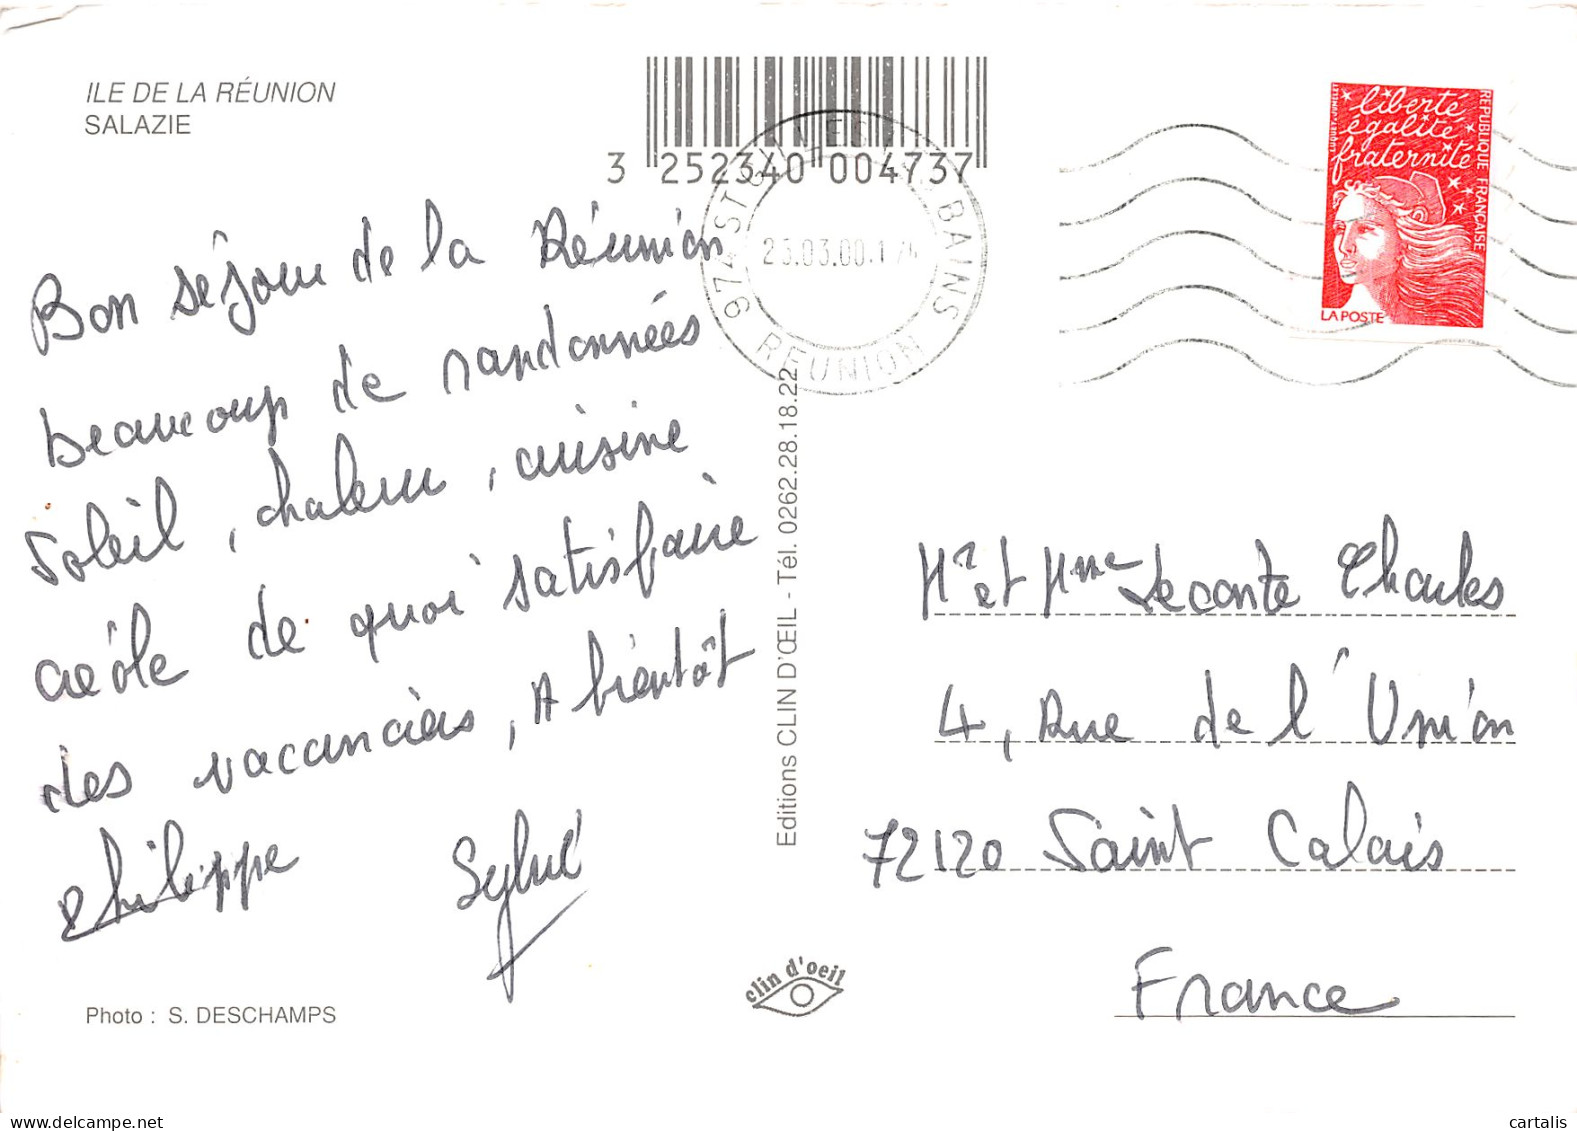 ILE DE LA RÉUNION
SALAZIE
3 252340 004737
974 ST GILLES BAINS
RÉUNION
liberté
égalité
fraternité
REPUBLIQUE FRANÇAISE
LA POSTE
Bon séjour de la Réunion
beaucoup de randonnées
soleil, chaleur, cuisine
créole de quoi satisfaire
des vacanciers, A bientôt
Philippe
Photo : S. DESCHAMPS
Editions CLIN D'ŒIL - Tél. 0262.28.18.22
clin d'oeil
Mr et Mme Leconte Charles
4, Rue de l'Union
72120 Saint Calais
France
cartalis